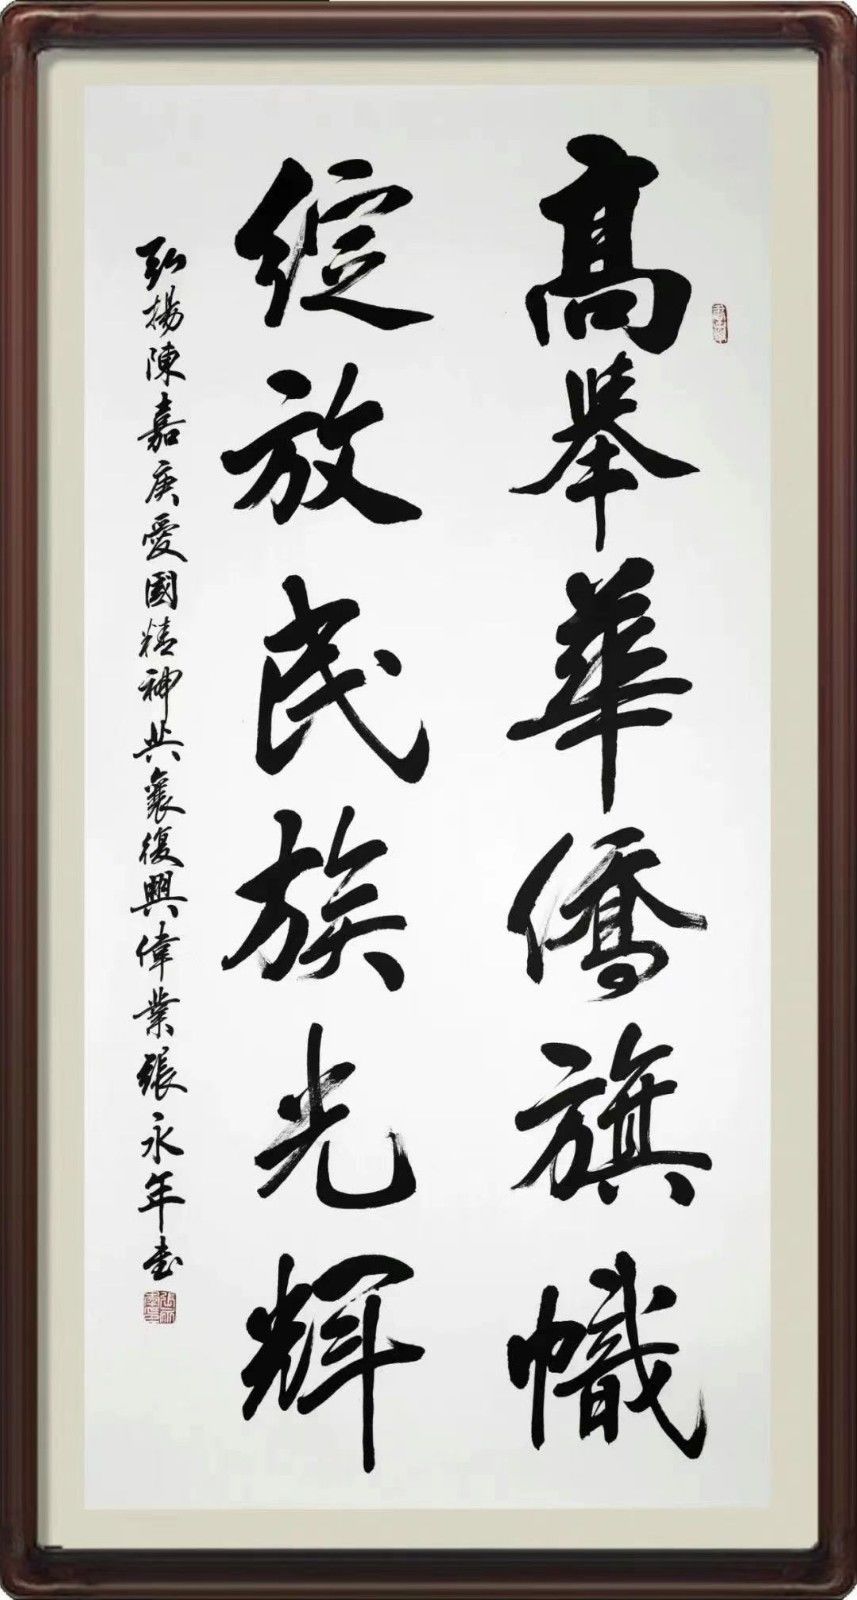 高舉華僑旗幟
綻放民族光輝
弘揚陳嘉庚愛國精神共襄復興偉業張永年書